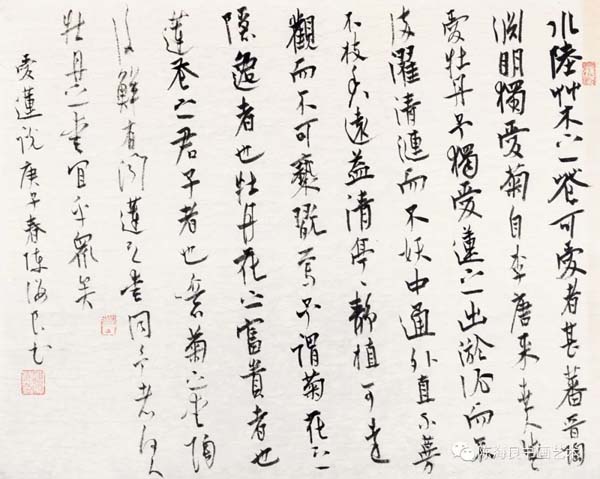 水陸艸木之華可愛者甚蕃晉陶
淵明獨愛菊自李唐来世人甚
愛牡丹予獨愛蓮之出淤泥而不
染濯清漣而不妖中通外直不蔓
不枝香遠益清亭、静植可遠
觀而不可褻翫焉予謂菊花之
隱逸者也牡丹花之富貴者也
蓮花之君子者也噫菊之愛陶
後鮮有聞蓮之愛同予者何人
牡丹之愛宜乎衆矣
愛蓮説庚子春陳海良書
陈海良书画艺术